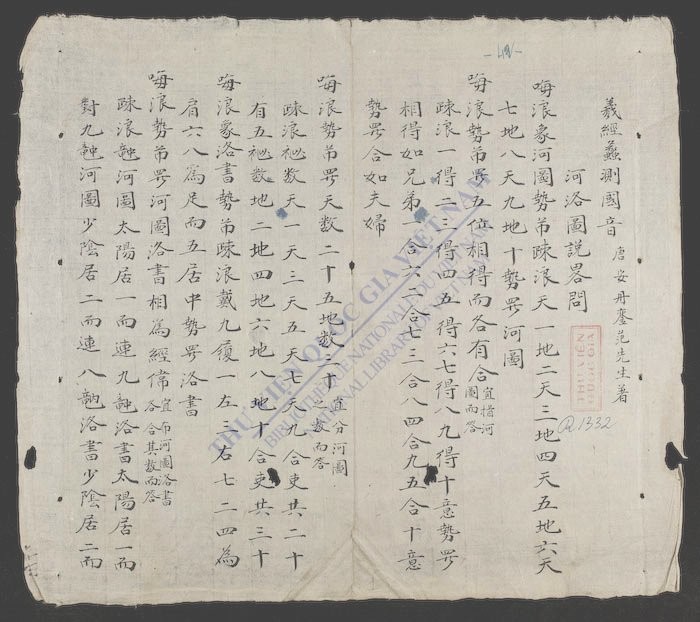 羲經蠡測國音 唐安丹鑾范先生著
河洛圖說畧問
嗨浪象河圖勢芇疎浪天一地二天三地四天五地六天
七地八天九地十勢罗河圖
嗨浪勢芇罗五位相得而各有合 宜指河圖而答
疎浪一得二三得四五得六七得八九得十意勢罗
相得如兄弟一合六二合七三合八四合九五合十意
勢罗合如夫婦
嗨浪勢芇罗天数二十五地数三十 宜分河圖之数而答
疎浪𥙩数天一天三天五天七天九合吏共二十
有五𥙩数地二地四地六地八地十合吏共三十
嗨浪象洛書勢芇疎浪戴九履一左三右七二四為
肩六八為足而五居中勢罗洛書
嗨浪勢芇罗河圖洛書相為經偉 宜布河圖洛書各合其数而答
疎浪河圖太陽居一而連九洛書太陽居一而
對九河圖少陰居二而連八洛書少陰居二而
THƯ VIỆN QUỐC GIA
R.1332
THƯ VIỆN QUỐC GIA VIỆT NAM
BIBLIOTHÈQUE NATIONALE DU VIETNAM
NATIONAL LIBRARY OF VIETNAM